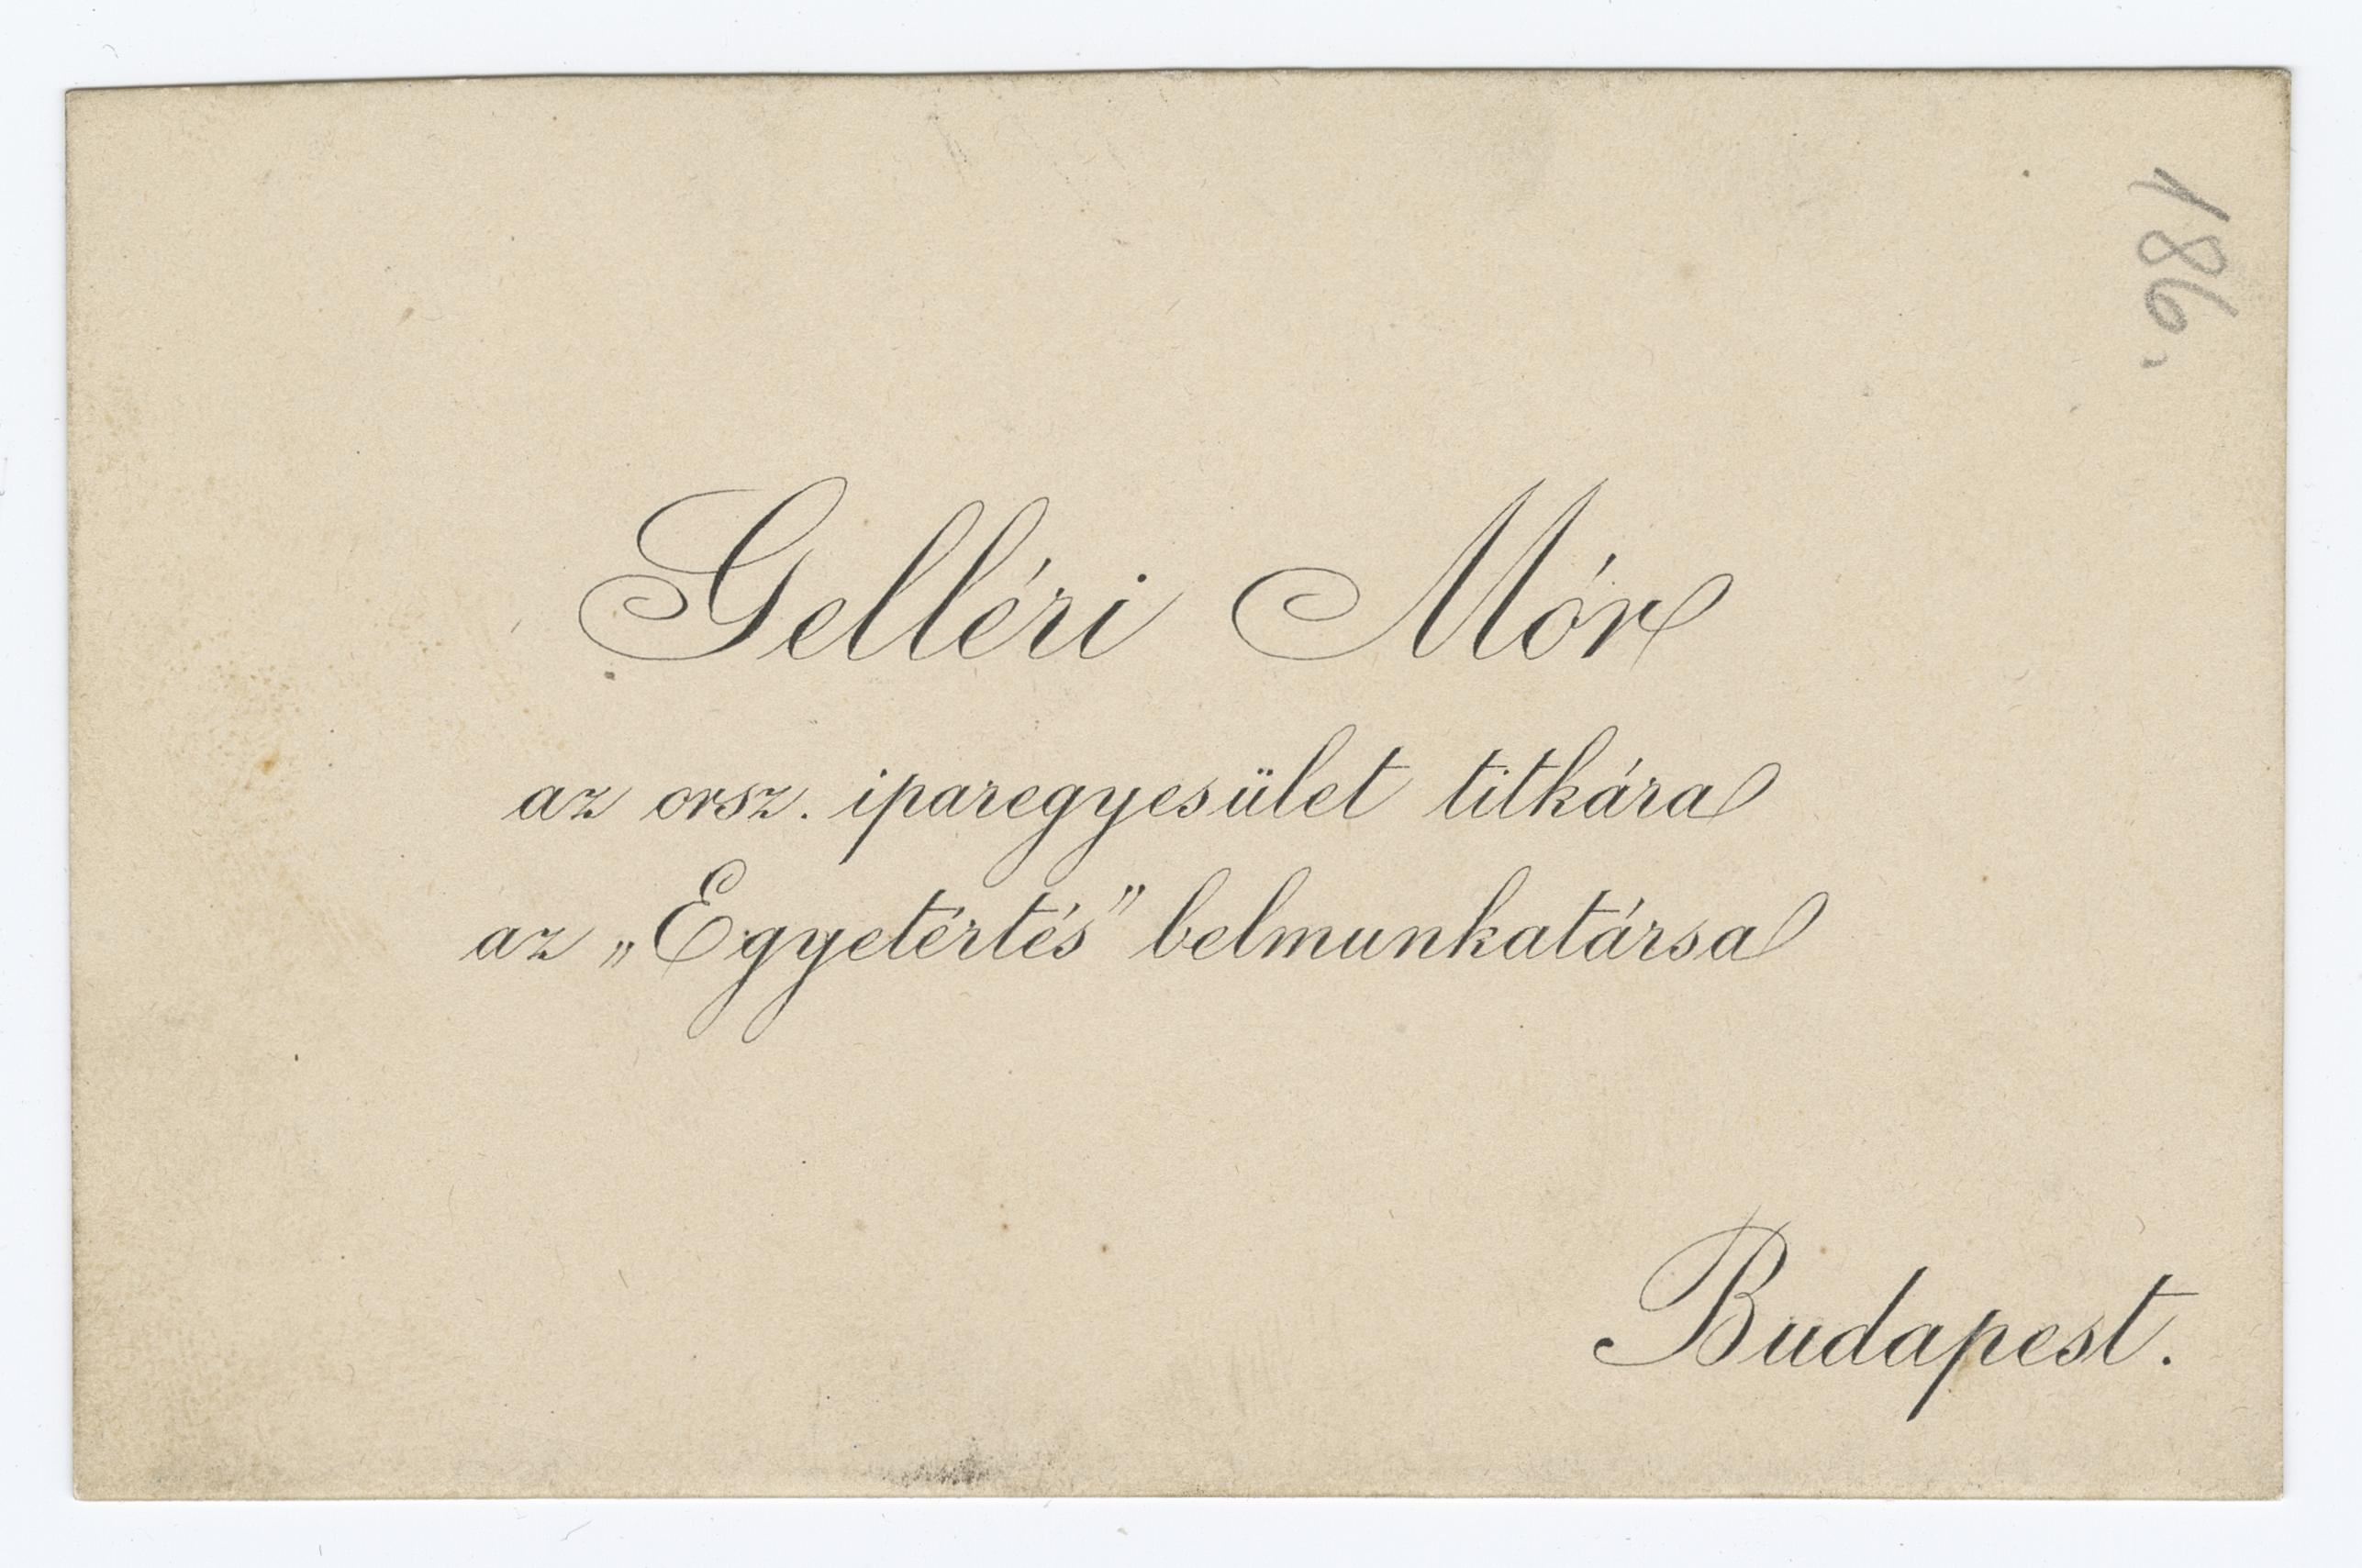 186.
Gelléri Mór
az orsz. iparegyesület titkára
az „Egyetértés” belmunkatársa
Budapest.